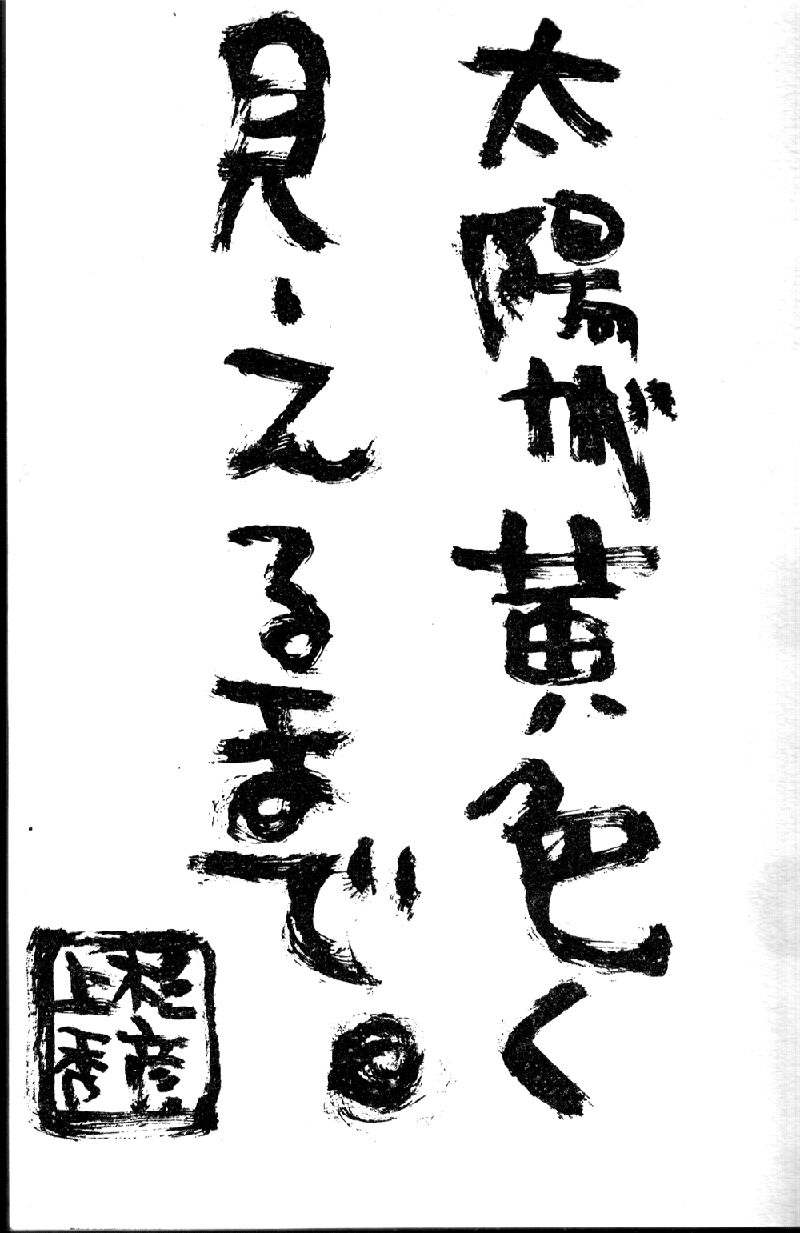 太陽が黄色く
見、える まで。